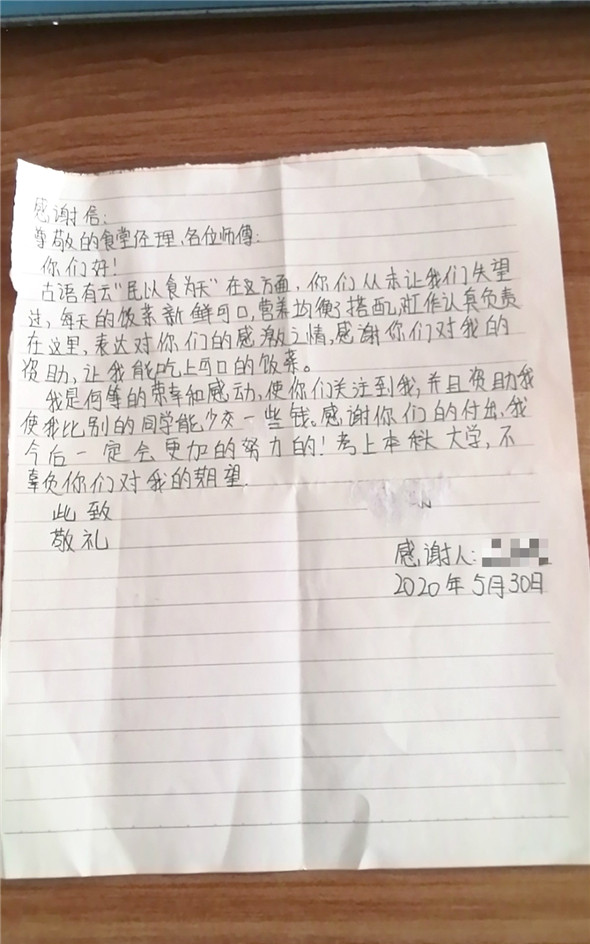 感谢信:
尊敬的食堂经理、各位师傅:
你们好!
古语有云"民以食为天"在这方面,你们从未让我们失望
过,每天的饭菜新鲜可口,营养均衡搭配,工作认真负责
在这里,表达对你们的感激之情,感谢你们对我的
资助,让我能吃上可口的饭菜。
我是何等的荣幸和感动,使你们关注到我,并且资助我
使我比别的同学能少交一些钱。感谢你们的付出,我
今后一定会更加的努力的!考上本科大学,不
辜负你们对我的期望.
此致
敬礼
感谢人:
2020年5月30日